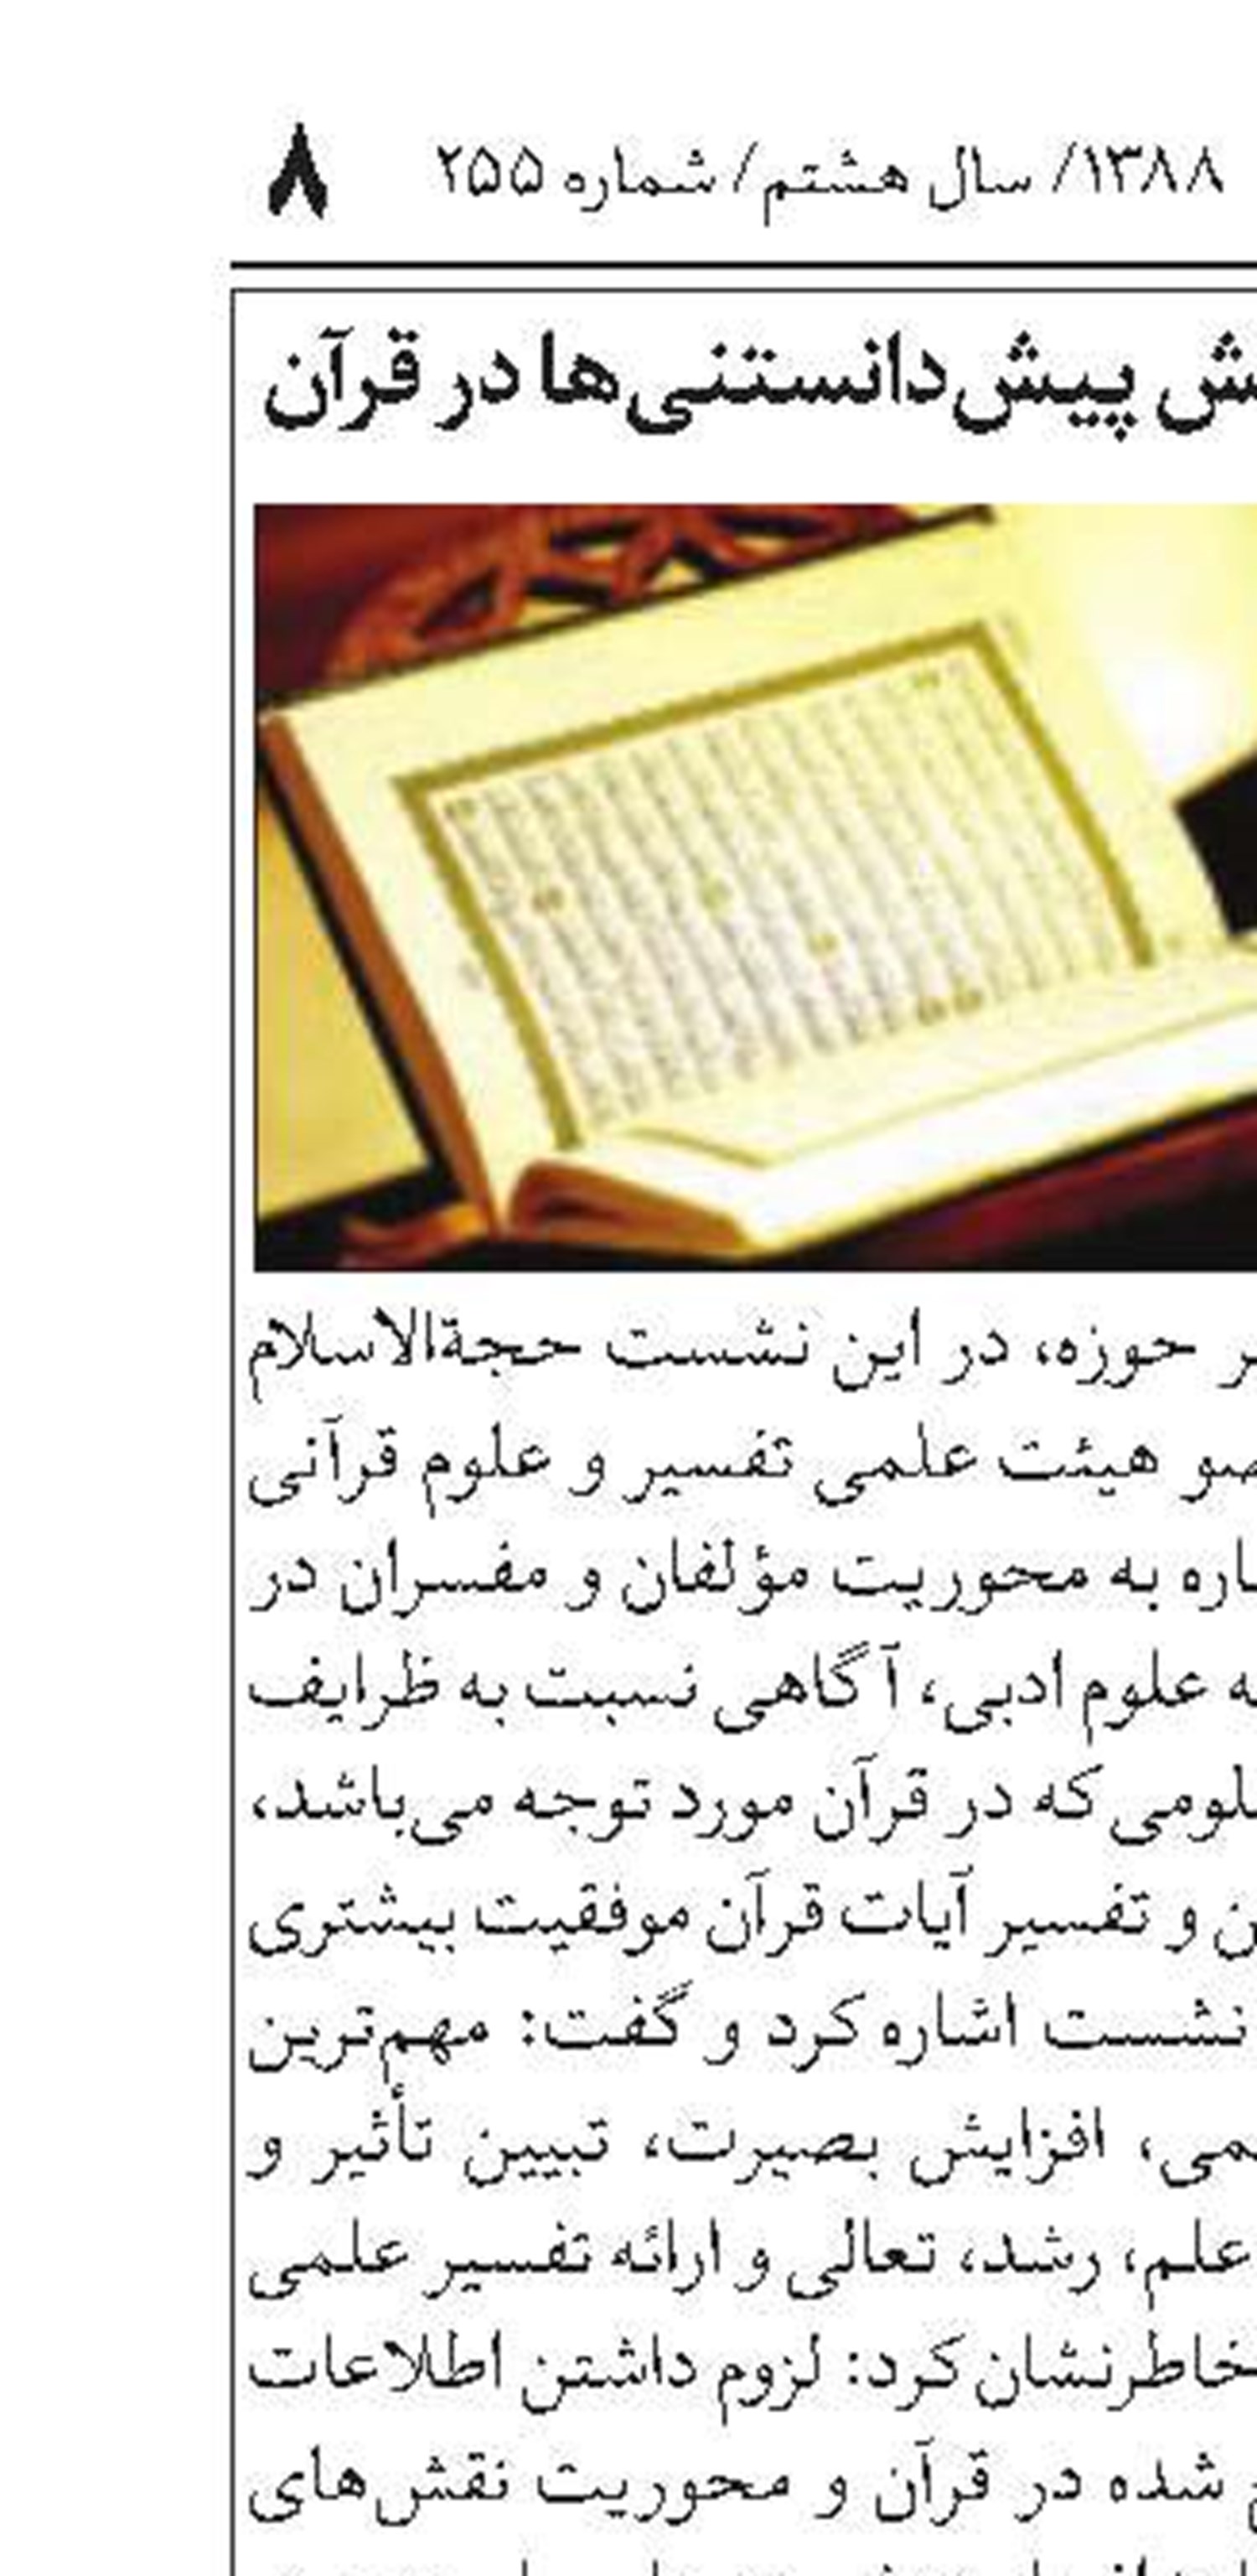 ۱۳۸۸/ سال هشتم/ شماره ۲۵۵
۸
پیش‌دانستنی‌ها در قرآن
حوزه، در این نشست حجةالاسلام
هیئت علمی تفسیر و علوم قرآنی
به محوریت مؤلفان و مفسران در
علوم ادبی، آگاهی نسبت به ظرایف
که در قرآن مورد توجه می‌باشد،
و تفسیر آیات قرآن موفقیت بیشتری
نشست اشاره کرد و گفت: مهم‌ترین
افزایش بصیرت، تبیین تأثیر و
علم، رشد، تعالی و ارائه تفسیر علمی
خاطرنشان کرد: لزوم داشتن اطلاعات
شده در قرآن و محوریت نقش‌های